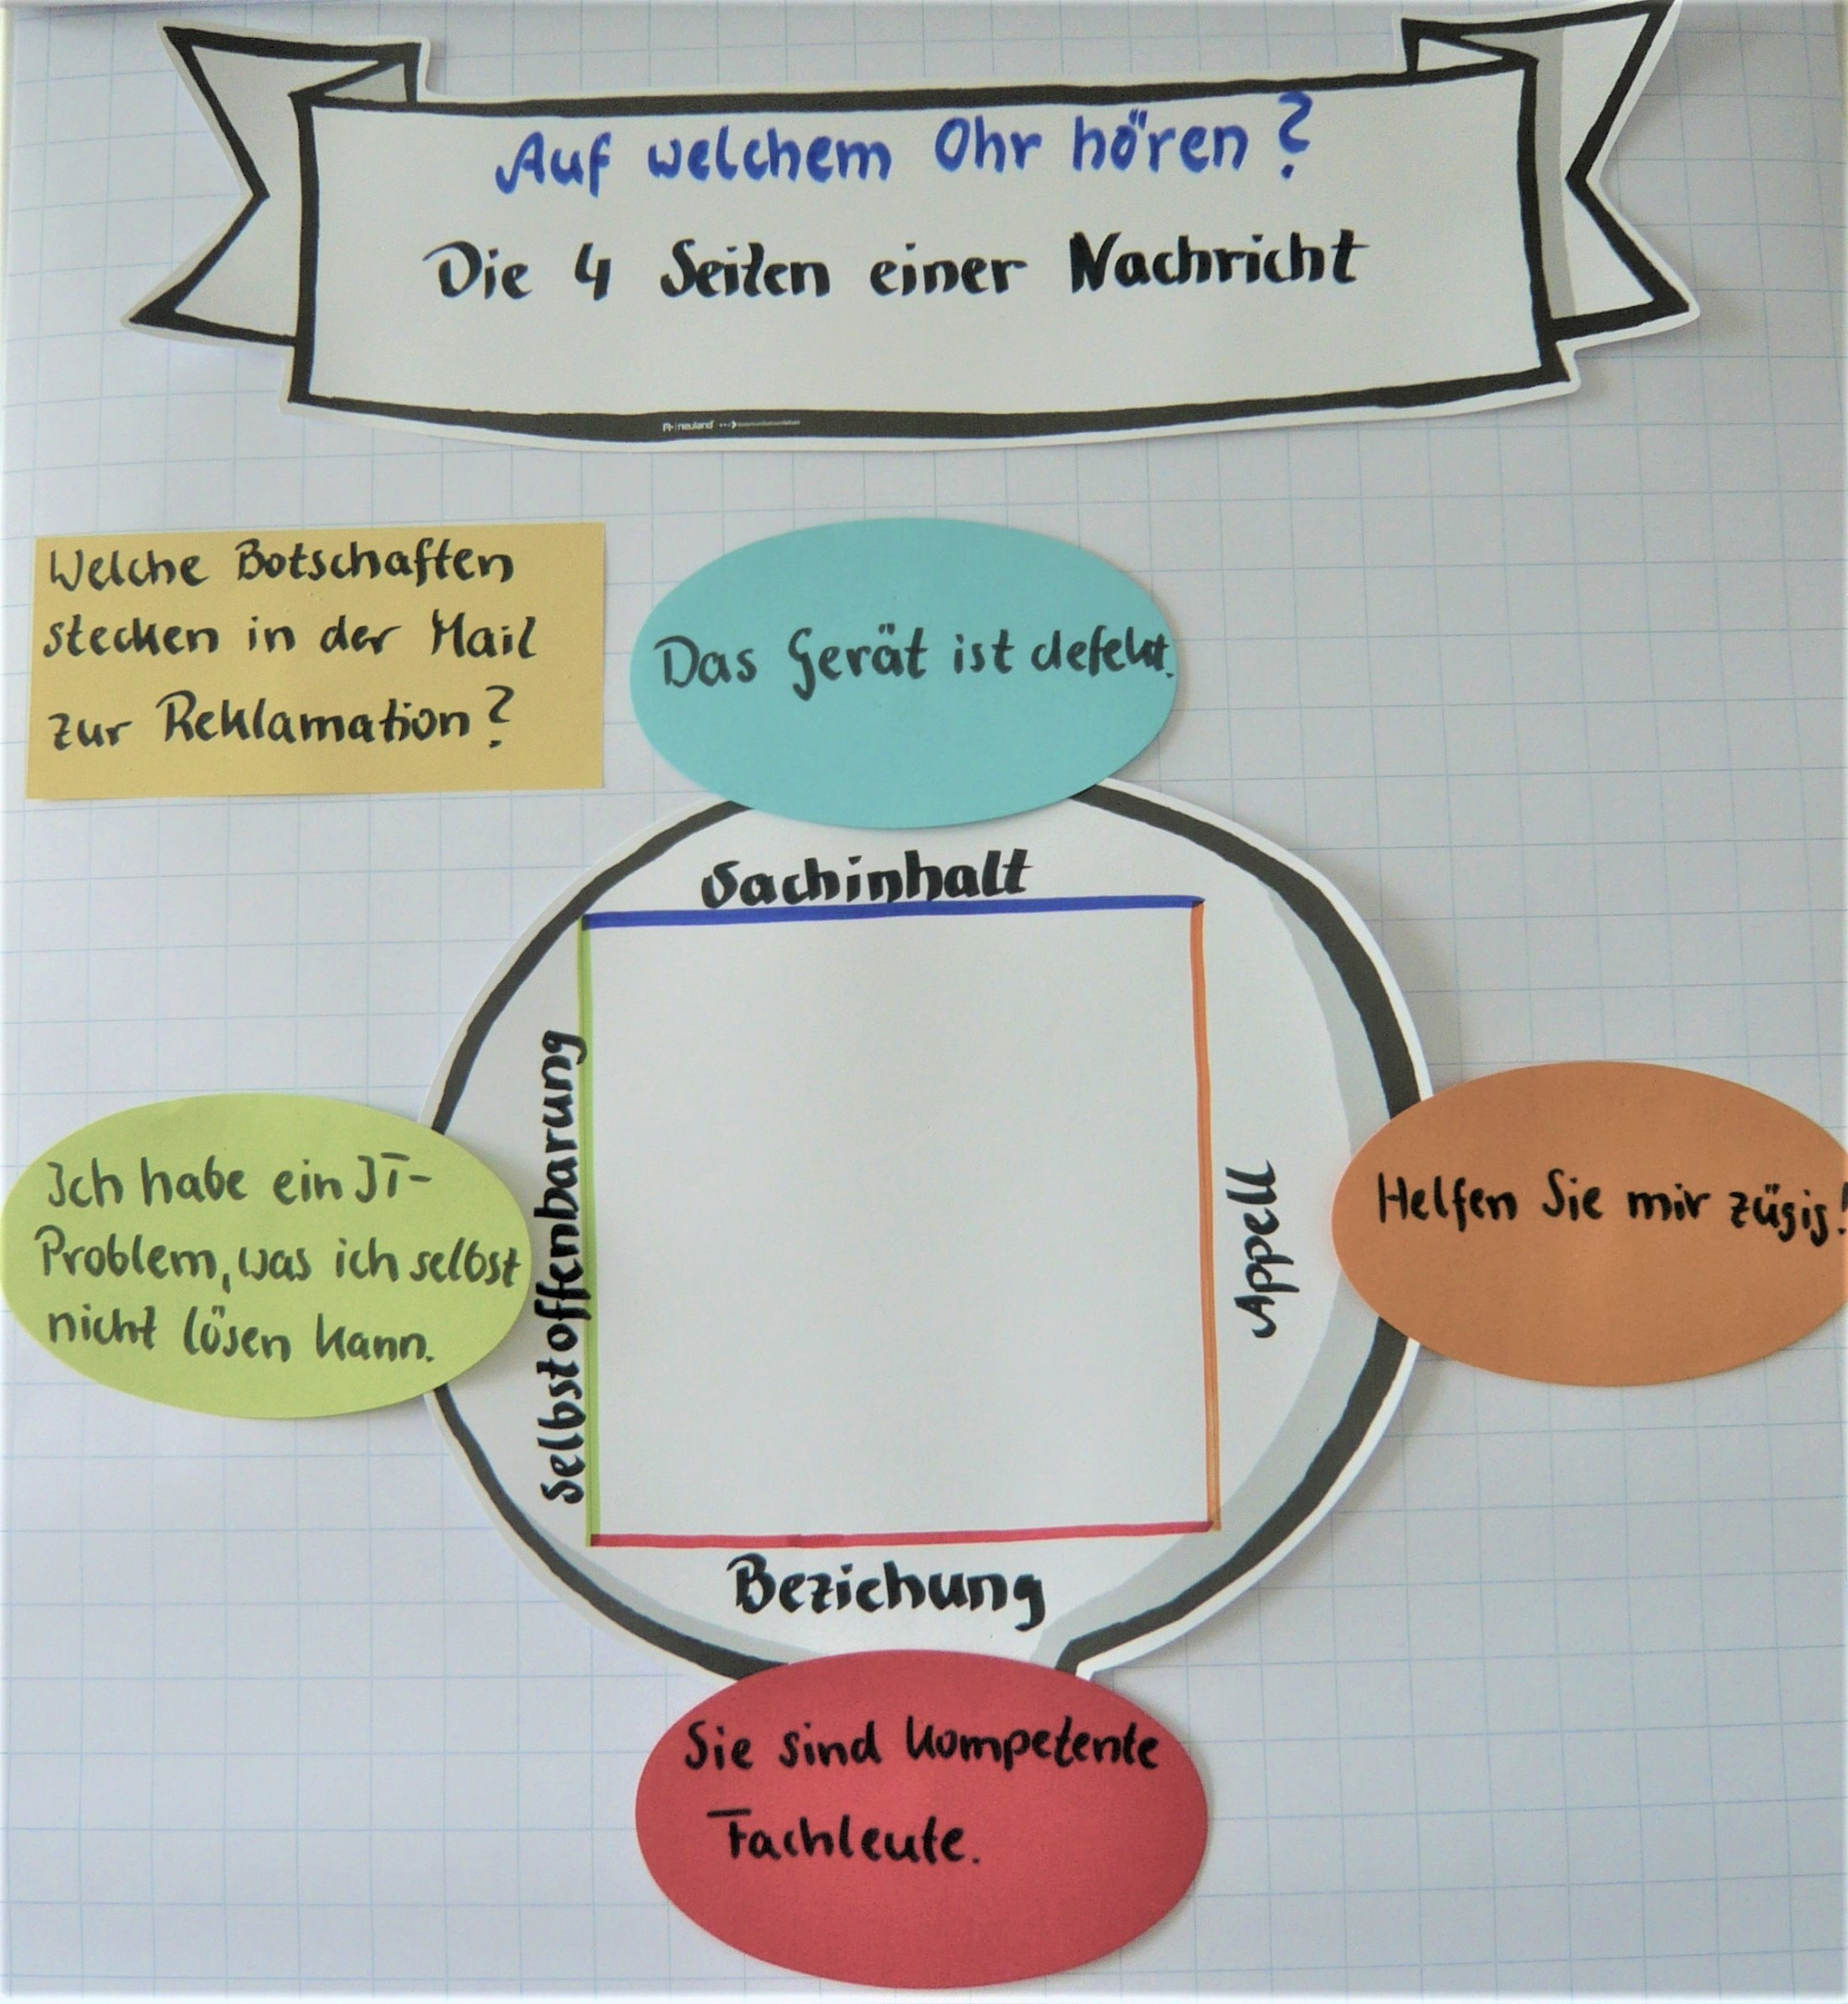 Auf welchem Ohr hören?
Die 4 Seiten einer Nachricht
neuland
Welche Botschaften
stecken in der Mail
zur Reklamation?
Das Gerät ist defekt.
Sachinhalt
Selbstoffenbarung
Appell
Beziehung
Ich habe ein IT-
Problem, was ich selbst
nicht lösen kann.
Helfen Sie mir zügig!
Sie sind kompetente
Fachleute.